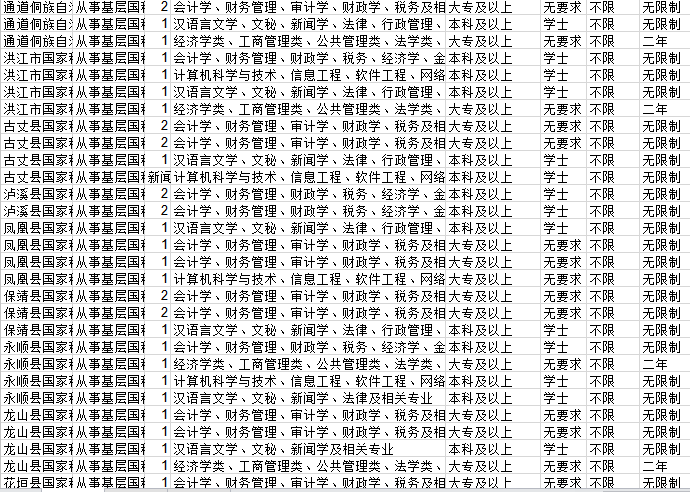 通道侗族自 从事基层国 2 会计学、财务管理、审计学、财政学、税务及相 大专及以上 无要求 不限 无限制
通道侗族自 从事基层国 1 汉语言文学、文秘、新闻学、法律、行政管理、 本科及以上 学士 不限 无限制
通道侗族自 从事基层国 1 经济学类、工商管理类、公共管理类、法学类、 大专及以上 无要求 不限 二年
洪江市国家 从事基层国 1 会计学、财务管理、财政学、税务、经济学、金 本科及以上 学士 不限 无限制
洪江市国家 从事基层国 1 计算机科学与技术、信息工程、软件工程、网络 本科及以上 学士 不限 无限制
洪江市国家 从事基层国 1 汉语言文学、文秘、新闻学、法律、行政管理、 本科及以上 学士 不限 无限制
洪江市国家 从事基层国 1 经济学类、工商管理类、公共管理类、法学类、 大专及以上 无要求 不限 二年
古丈县国家 从事基层国 2 会计学、财务管理、审计学、财政学、税务及相 大专及以上 无要求 不限 无限制
古丈县国家 从事基层国 2 会计学、财务管理、审计学、财政学、税务及相 大专及以上 无要求 不限 无限制
古丈县国家 从事基层国 1 汉语言文学、文秘、新闻学、法律、行政管理、 本科及以上 学士 不限 无限制
古丈县国家 从事基层国 新闻 计算机科学与技术、信息工程、软件工程、网络 本科及以上 学士 不限 无限制
泸溪县国家 从事基层国 2 会计学、财务管理、财政学、税务、经济学、金 本科及以上 学士 不限 无限制
泸溪县国家 从事基层国 2 会计学、财务管理、财政学、税务、经济学、金 本科及以上 学士 不限 无限制
凤凰县国家 从事基层国 1 汉语言文学、文秘、新闻学、法律、行政管理、 本科及以上 学士 不限 无限制
凤凰县国家 从事基层国 1 会计学、财务管理、审计学、财政学、税务及相 大专及以上 无要求 不限 无限制
凤凰县国家 从事基层国 1 会计学、财务管理、审计学、财政学、税务及相 大专及以上 无要求 不限 无限制
凤凰县国家 从事基层国 1 计算机科学与技术、信息工程、软件工程、网络 大专及以上 无要求 不限 无限制
保靖县国家 从事基层国 2 会计学、财务管理、审计学、财政学、税务及相 大专及以上 无要求 不限 无限制
保靖县国家 从事基层国 2 会计学、财务管理、审计学、财政学、税务及相 大专及以上 无要求 不限 无限制
保靖县国家 从事基层国 1 汉语言文学、文秘、新闻学、法律、行政管理、 本科及以上 学士 不限 无限制
永顺县国家 从事基层国 1 会计学、财务管理、财政学、税务、经济学、金 本科及以上 学士 不限 无限制
永顺县国家 从事基层国 2 经济学类、工商管理类、公共管理类、法学类、 大专及以上 无要求 不限 二年
永顺县国家 从事基层国 1 计算机科学与技术、信息工程、软件工程、网络 本科及以上 学士 不限 无限制
永顺县国家 从事基层国 1 汉语言文学、文秘、新闻学、法律及相关专业 本科及以上 学士 不限 无限制
龙山县国家 从事基层国 1 会计学、财务管理、审计学、财政学、税务及相 大专及以上 无要求 不限 无限制
龙山县国家 从事基层国 1 会计学、财务管理、审计学、财政学、税务及相 大专及以上 无要求 不限 无限制
龙山县国家 从事基层国 1 汉语言文学、文秘、新闻学及相关专业 本科及以上 学士 不限 无限制
龙山县国家 从事基层国 1 经济学类、工商管理类、公共管理类、法学类、 大专及以上 无要求 不限 二年
花垣县国家 从事基层国 1 会计学、财务管理、审计学、财政学、税务及相 大专及以上 无要求 不限 无限制